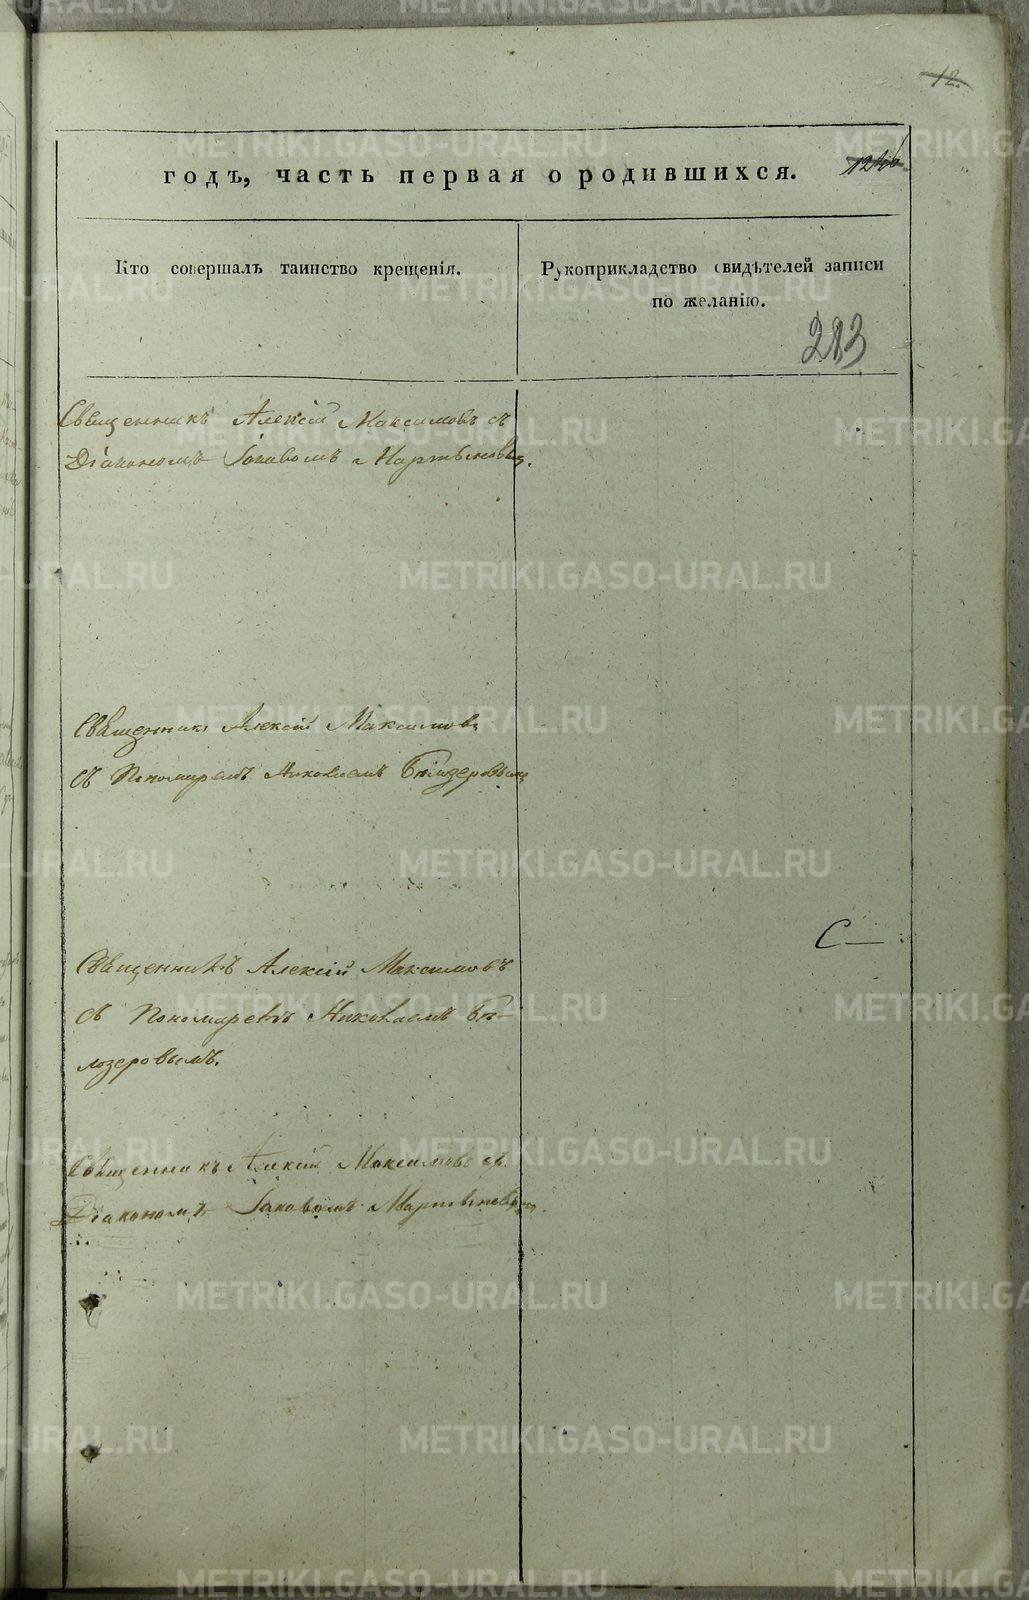 12.
годъ, часть первая о родившихся.
Кто совершалъ таинство крещенія.
Рукоприкладство свидѣтелей записи
по желанію.
283
Священникъ Алексій Максимовъ съ
Діакономъ Іаковомъ Мартыновым.
Священникъ Алексій Максимовъ
съ Пономаремъ Николаемъ Бѣлозеровымъ
Священникъ Алексій Максимовъ
съ Пономаремъ Николаемъ Бѣ-
лозеровымъ.
Священникъ Алексій Максимовъ съ
Діакономъ Іаковомъ Мартыновым.
METRIKI.GASO-URAL.RU